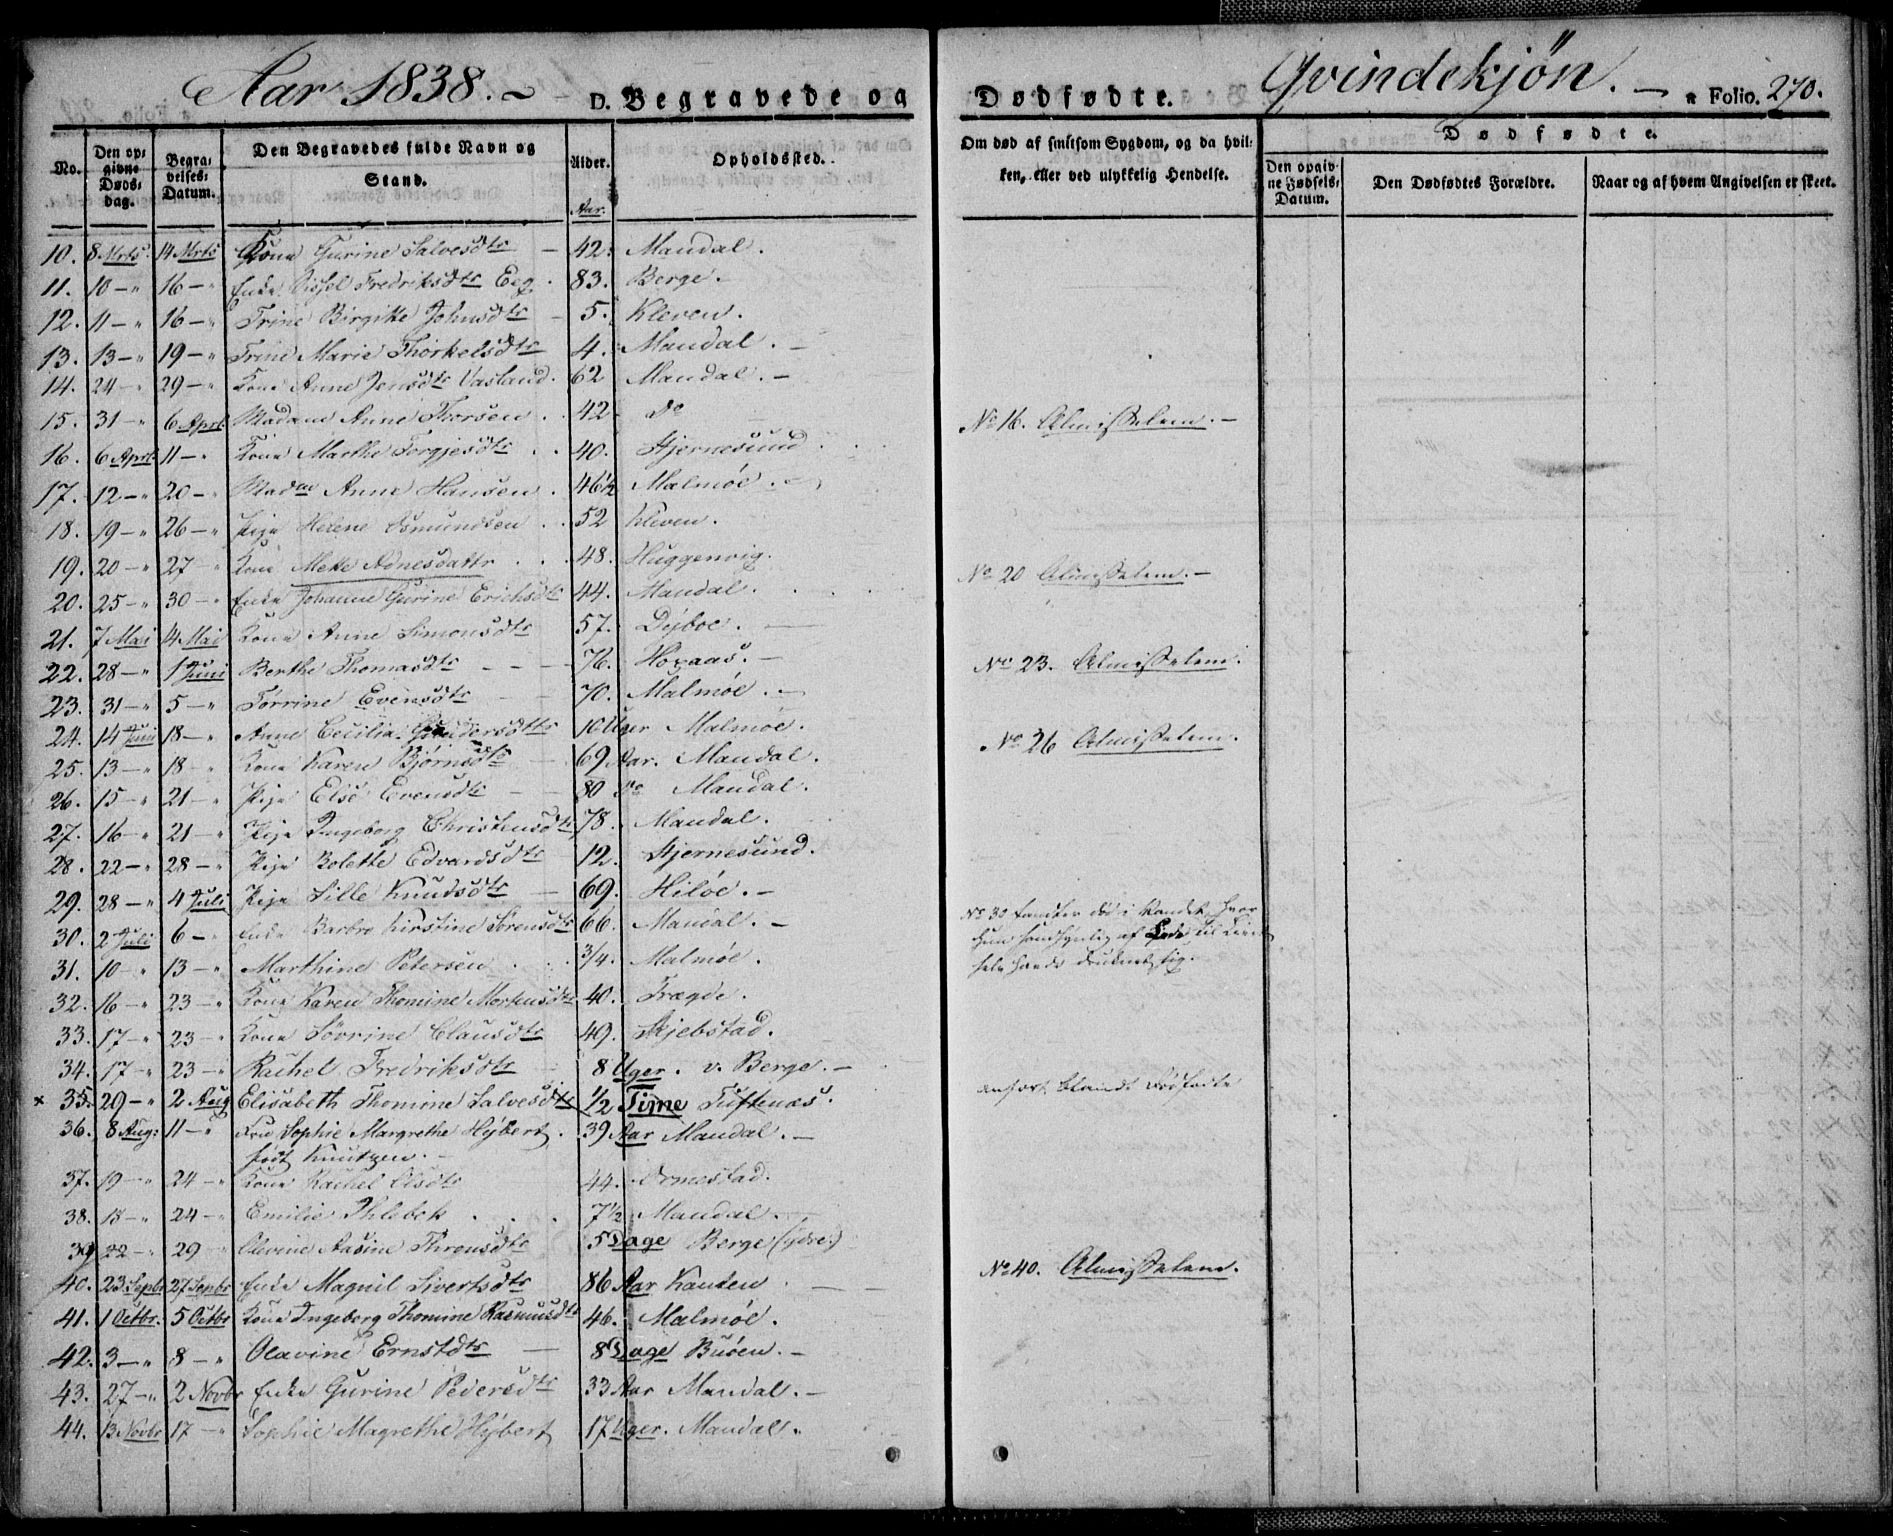 Aar 1838. D. Begravede og Dødfødte. Qvindekjön. Folio. 270.
No. Den op=givne Døds=dag. Begra=velses=Datum. Den Begravedes fulde Navn og Stand. Alder. Aar. Opholdssted.
Om død af smitsom Sygdom, og da hvil=ken, eller ved ulykkelig Hendelse.
Dødfødte.
Den opgiv=ne Fødsels=Datum. Den Dødfødtes Forældre. Naar og af hvem Angivelsen er skeet.
10. 8 Mrts 14 Mrts Kone Gurine Salvesdtr 42. Mandal.
11. 10 - " 16 - " Enke Sissel Fredriksdtr Eeg. 83. Berge.
12. 11 - " 16 - " Trine Birgitte Johnsdtr 5. Kleven.
13. 13 - " 19 - " Trine Marie Thorkelsdtr 4. Mandal.
14. 24 - " 29 - " Kone Anne Jensdtr Vasland. 62 Mandal.
15. 31 - " 6 Aprl Madam Anne Thorsen 42 Do
16. 6 Aprl 11 - " Kone Marthe Torgjesdtr 40. Hjernesund No 16. Almisselem.
17. 12 - " 20 - " Madm Anne Hansen 46 1/2 Malmöe.
18. 19 - " 26 - " Pige Helene Osmundsen 52 Kleven.
19. 20 - " 27 - " Kone Mette Adnesdattr 48. Huggenvig.
20. 25 - " 30 - " Enke Johanne Gurine Erichsdtr 44. Mandal. No 20 Almisselem.
21. 7 Mai 14 Mai Kone Anne Simonsdtr 57. Dyboe.
22. 28 - " 1 Juni Berthe Thomasdtr 76. Hovaas.
23. 31 - " 5 - " Torrine Evensdtr 70. Malmöe. No 23. Almisselem.
24. 14 Juni 18 - " Anne Cecilia Gundersdttr 10 Uger Malmöe.
25. 13 - " 18 - " Kone Karen Bjørnsdtr 69 Aar. Mandal.
26. 15 - " 21 - " Pige Else Evensdtr 80 Do Mandal. No 26 Almisselem.
27. 16 - " 21 - " Pige Ingeborg Christensdtr 78. Mandal.
28. 22 - " 28 - " Pige Bolette Edvardsdtr 12. Hjernesund.
29. 28 - " 4 Juli Pige Sille Knudsdtr 69. Hilöe.
30. 2 Juli 6 - " Enke Barbro Kirstine Sörensdtr 66. Mandal. No 30 fandtes død i Vandet, hvor
hun sandsynlig af
druknet sig.
31. 10 - " 13 - " Marthine Petersen 3/4. Malmöe.
32. 16 - " 23 - " Kone Karen Thomine Mortensdtr 40. Trægde.
33. 17 - " 23 - " Kone Sörrine Clausdtr 49. Skjebstad.
34. 17 - " 23 - " Rachel Fredriksdtr 8 Uger. v. Berge.
x 35. 29 - " 2 Aug Elisabeth Thomine Salvesdtr 1/2 Time Tuftenæs. anført blandt Dødfødte
36. 8 Aug: 11 - " Fru Sophie Margrethe Hÿbert 39 Aar Mandal.
født Knutzen.
37. 19 - " 24 - " Kone Rachel Olsdtr 44. Ormestad.
38. 18 - " 24 - " Emilie Ihlebek 7 1/2 Mandal.
39 22 - " 29 - " Olevine Aasine Thronsdtr 5 Dage Berge (ÿdre.)
40. 23 Sepbr 27 Sepbr Enke Magnil Sivertsdtr 86 Aar Kanten No 40. Almisselem.
41. 1 Octbr. 5 Octbr Kone Ingeborg Thomine Rasmusdtr 46. Malmöe.
42. 3 - " 8 - " Olavine Ernstdtr 8 Dage Buöen.
43. 27 - " 2 Novbr Enke Gurine Pedersdtr 33 Aar Mandal.
44. 13 Novbr 17 - " Sophie Magrethe Hÿbert 17 Uger. Mandal.